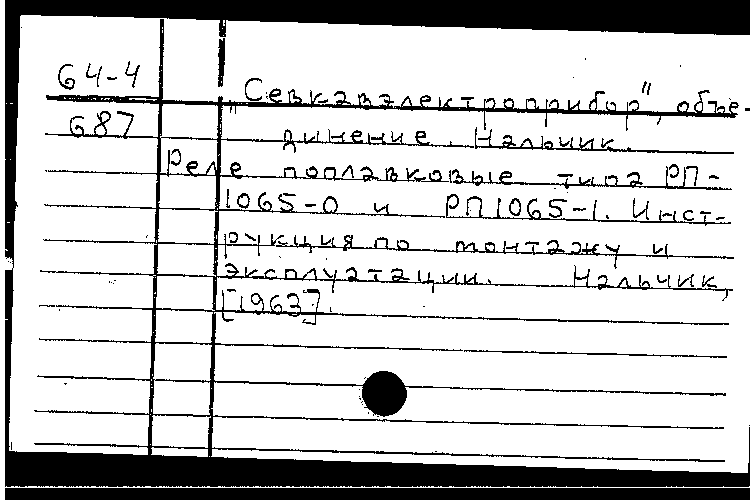 64-4
687
"Севкавэлектроприбор", объе-
динение. Нальчик.
Реле поплавковые типа РП-
1065-0 и РП1065-1. Инст-
рукция по монтажу и
эксплуатации. Нальчик,
[1963].